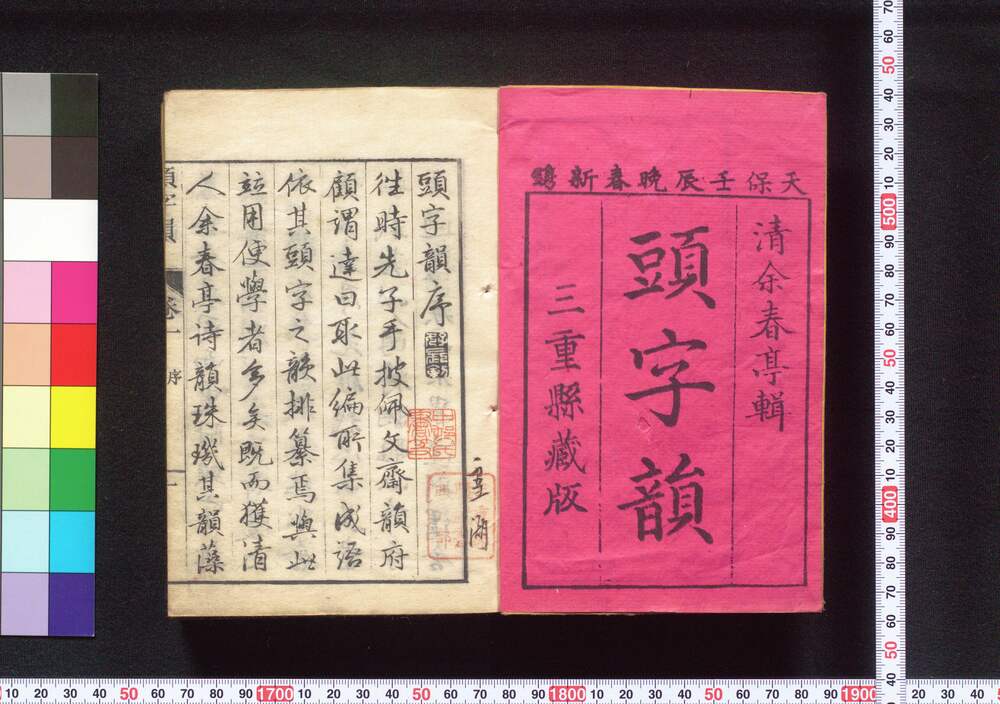 天保壬辰晩春新鐫
清余春亭輯
頭字韻
三重縣藏版
頭字韻序
徃時先子手披佩文齋韻府
顧謂達曰取此編所集成語
依其頭字之韻排纂焉與此
竝用使學者多矣既而獲清
人余春亭詩韻珠璣其韻藻
頭字韻
卷一
序
一
10 20 30 40 50 60 70 80 90 1700 10 20 30 40 50 60 70 80 90 1800 10 20 30 40 50 60 70 80 90 1900 20 30 40
70 60 50 40 30 20 10 500 90 80 70 60 50 40 30 20 10 400 90 80 70 60 50 40